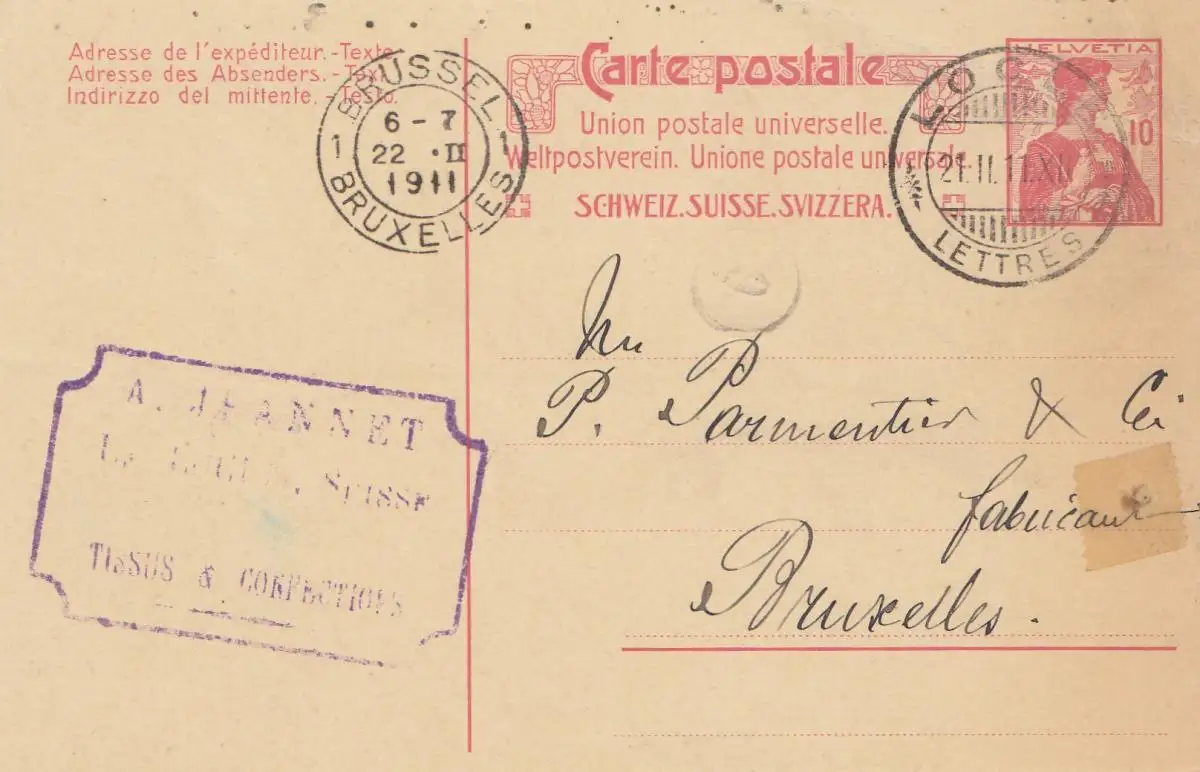 Adresse de l'expéditeur.-Texte.
Adresse des Absenders.-Text.
Indirizzo del mittente.-Testo.
BRUSSEL
1 1
6-7
22 ·II
1911
BRUXELLES
Carte postale
Union postale universelle.
Weltpostverein. Unione postale universale.
SCHWEIZ.SUISSE.SVIZZERA.
HELVETIA
10
LOC
21.II.11.XI
LETTRES
A. JEANNET
LE LOCLE, SUISSE
TISSUS & CONFECTIONS
P. Parmentier & Cie
fabricant
Bruxelles.